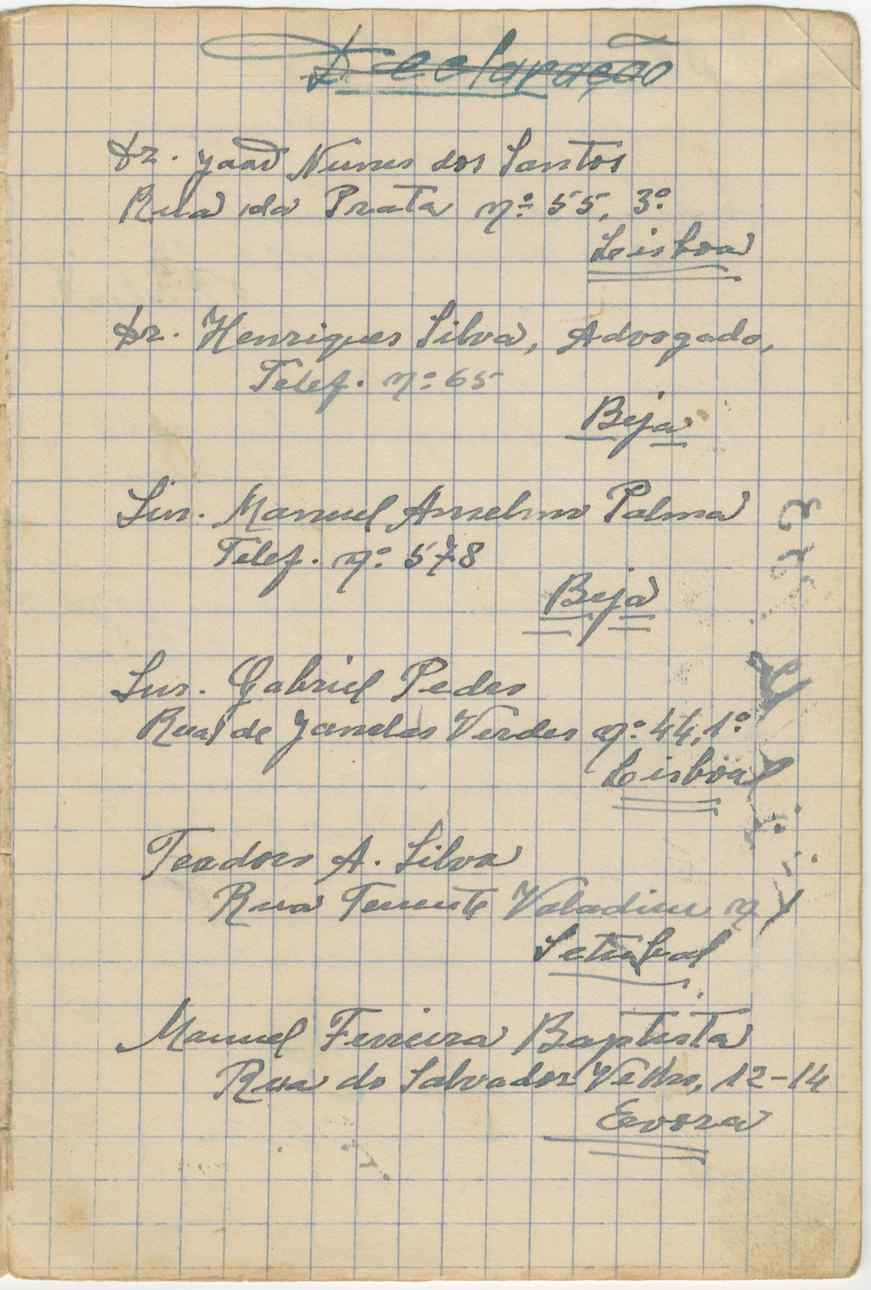 Declaração
Dr. João Nunes dos Santos
Rua da Prata nº 55, 3º
Lisboa
Dr. Henriques Silva, Advogado,
Telef. nº 65
Beja
Snr. Manuel Anselmo Palma
Telef. nº 578
Beja
Snr. Gabriel Pedes
Rua de Janelas Verdes nº 44, 1º
Lisboa
Teodoro A. Silva
Rua Tenente Valadim nº
Setubal
Manuel Ferreira Baptista
Rua do Salvador Velho, 12-14
Evora